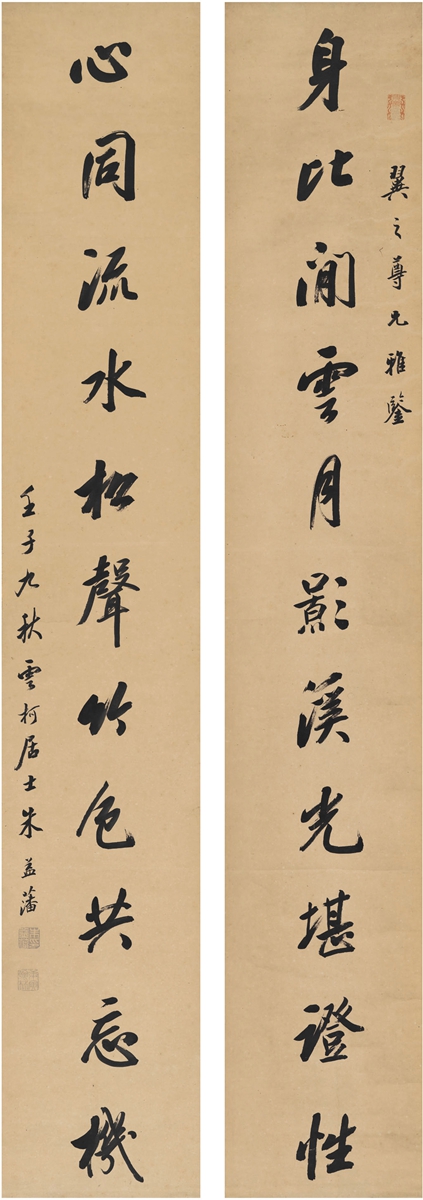 翼之尊兄雅鑒
身比閒雲月影溪光堪證性
心同流水松聲竹色共忘機
壬子九秋雲柯居士朱益藩